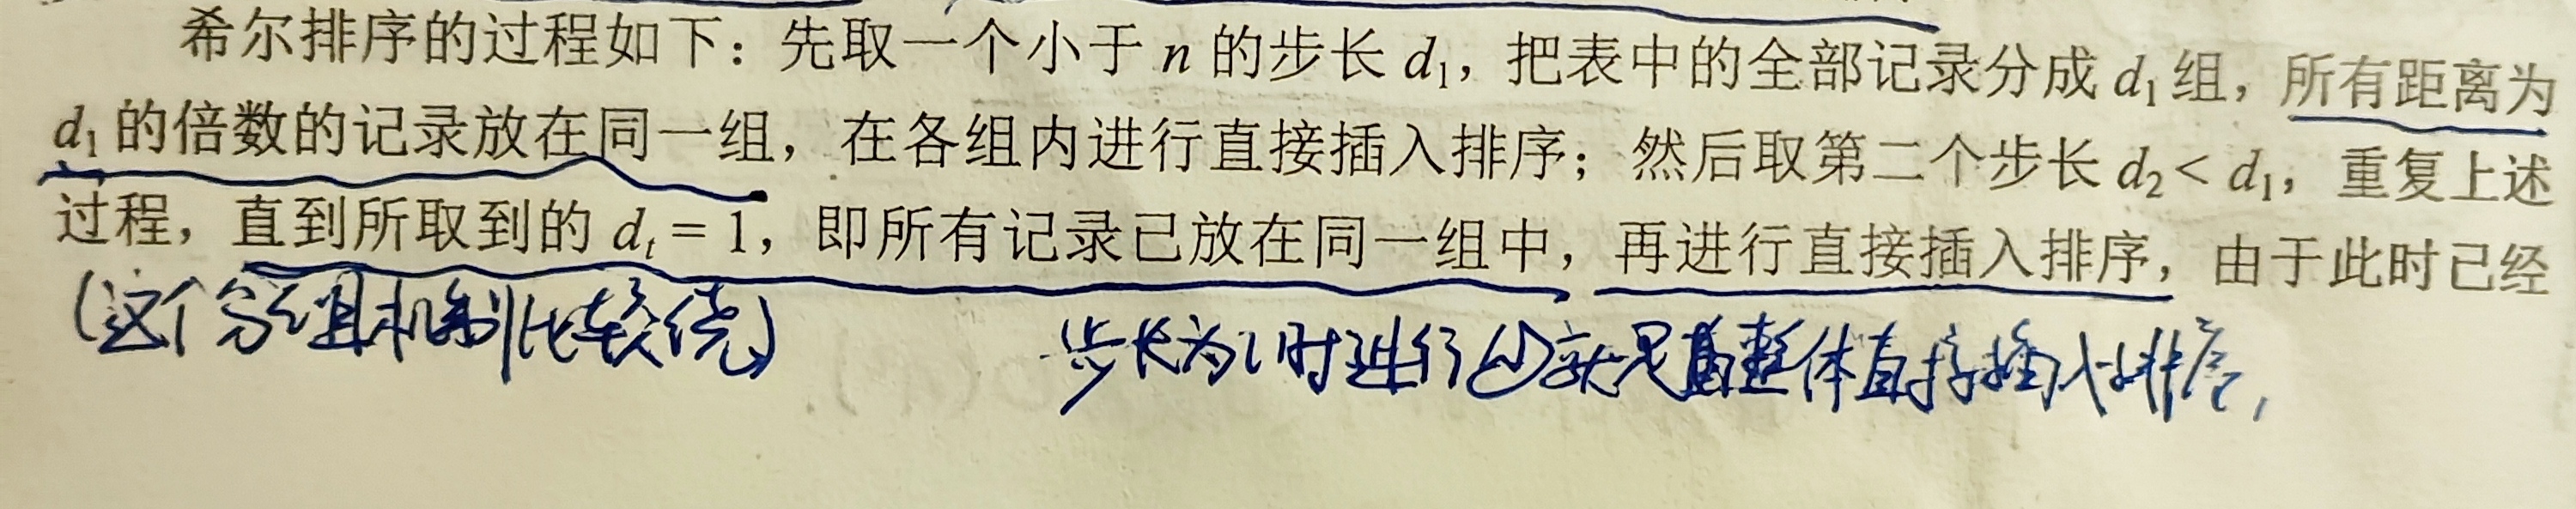 希尔排序的过程如下：先取一个小于 n 的步长 d₁，把表中的全部记录分成 d₁ 组，所有距离为
d₁ 的倍数的记录放在同一组，在各组内进行直接插入排序；然后取第二个步长 d₂ < d₁，重复上述
过程，直到所取到的 dₜ = 1，即所有记录已放在同一组中，再进行直接插入排序，由于此时已经
(这个分组机制比较绕)
步长为1时进行的就是整体直接插入排序，